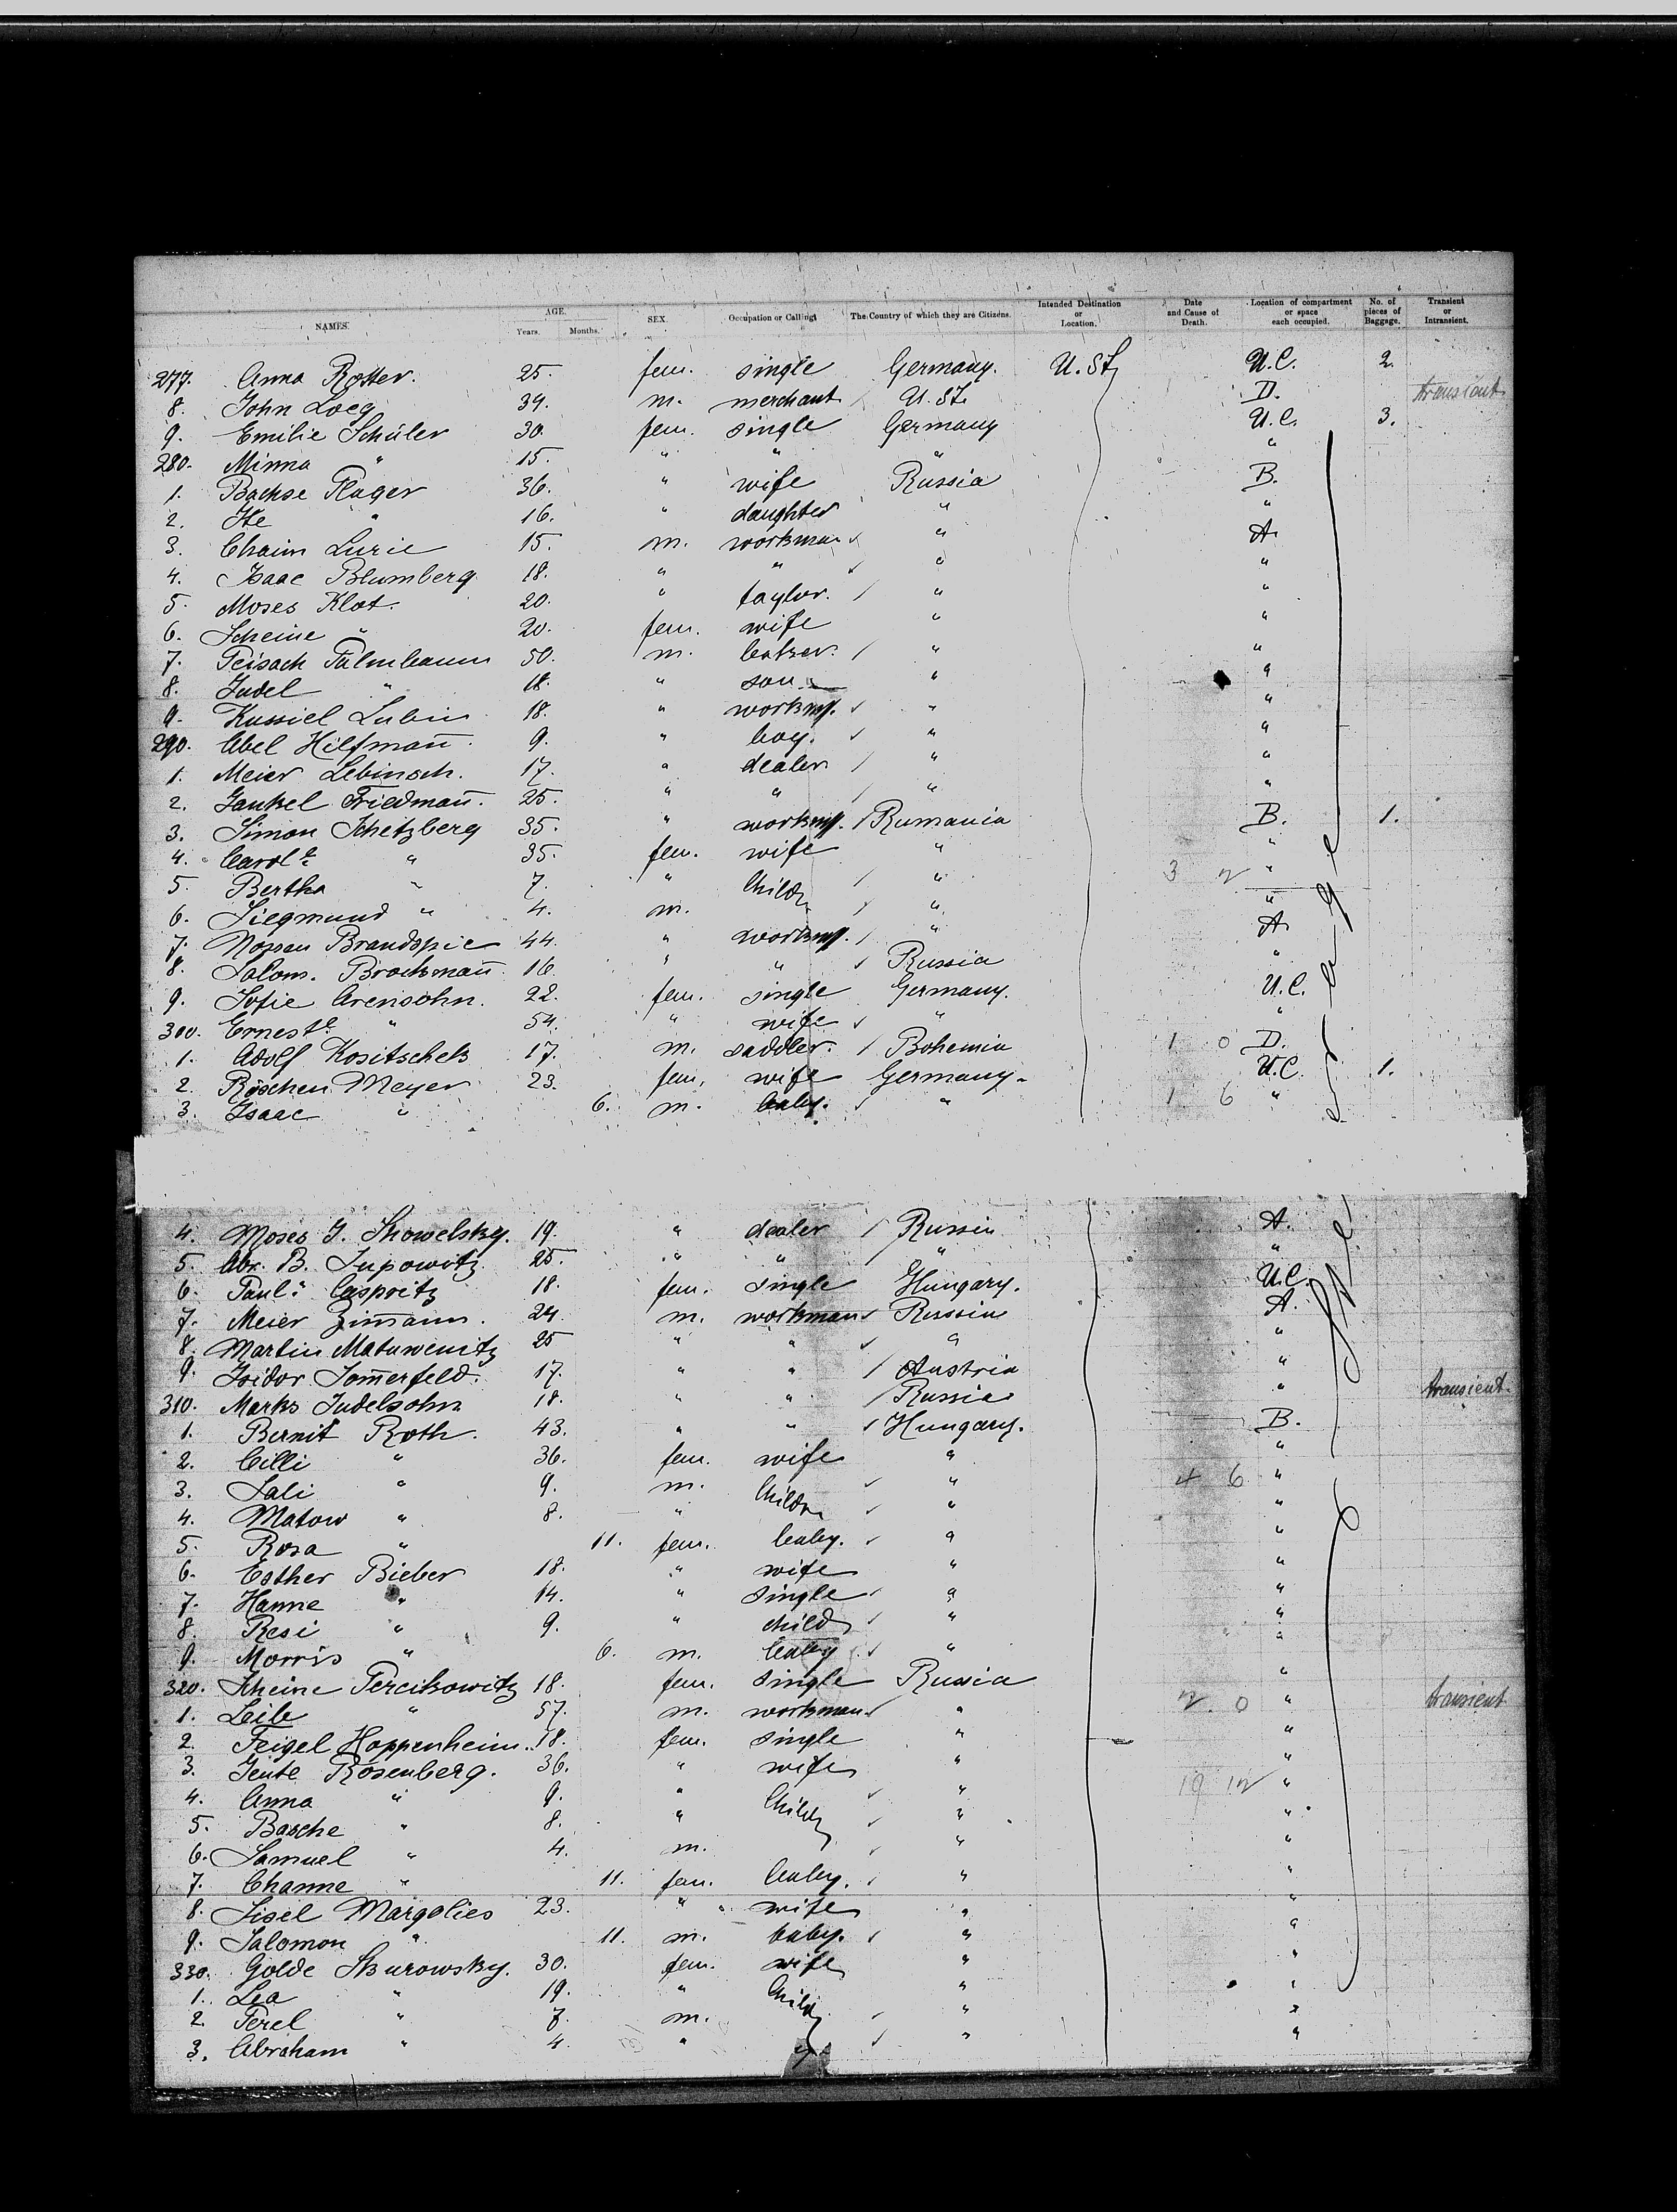 NAMES. AGE. Years. Months. SEX. Occupation or Calling. The Country of which they are Citizens. Intended Destination or Location. Date and Cause of Death. Location of compartment or space each occupied. No. of pieces of Baggage. Transient or Intransient.
277. Anna Rotter. 25. fem. single Germany. U.St. U.C. 2.
8. John Loeg 39. m. merchant U.St. D. transient
9. Emilie Schüler 30. fem. single Germany U.C. 3.
280. Minna " 15. " " " "
1. Bachse Plager 36. " wife Russia B.
2. Ite " 16. " daughter " "
3. Chaim Lurie 15. m. workman " A.
4. Isaac Blumberg 18. " " " "
5. Moses Klot. 20. " taylor. " "
6. Scheine " 20. fem. wife " "
7. Peisach Palmbaum 50. m. " "
8. Judel " 18. " son " "
9. Kussiel Lubin 18. " workm. " "
290. Abel Hilfmañ. 9. " boy. " "
1. Meier Lebinsch. 17. " dealer " "
2. Jankel Friedmañ. 25. " " " "
3. Simon Schetzberg 35. " workm. Rumania B. 1.
4. Carole " 35. fem. wife " "
5. Bertha " 7. " Child " 3 2 "
6. Siegmund " 4. m. " "
7. Nossen Brandspie 44. " workm. " A.
8. Salom. Brockmañ 16. " " Russia "
9. Sofie Arensohn. 22. fem. single Germany. U.C.
300. Erneste " 54. " wife " "
1. Adolf Kositschek 17. m. saddler. Bohemia 1 0 D.
2. Röschen Meyer 23. fem. wife Germany. U.C. 1.
3. Isaac " 6. m. baby. " 1 6 "
4. Moses J. Skowelsky. 19. " dealer Russia A.
5. Abr. B. Lupowitz 25. " " " "
6. Paul. Caspritz 18. fem. single Hungary. U.C.
7. Meier Zim̄ann. 24. m. workman Russia A.
8. Martin Matuwenitz 25 " " " "
9. Isidor Som̄erfeld. 17. " " Austria "
310. Marks Judelsohn 18. " " Russia " transient.
1. Bernit Roth. 43. " " Hungary. B.
2. Cilli " 36. fem. wife " "
3. Sali " 9. m. Child " 4 6 "
4. Matow " 8. " " "
5. Rosa " 11. fem. baby. " "
6. Esther Bieber 18. " wife " "
7. Hanne " 14. " single " "
8. Resi " 9. " child " "
9. Morris " 6. m. baby " "
320. Scheine Percikowitz 18. fem. single Russia "
1. Leib " 57. m. workman " 2. 0 " transient
2. Feigel Hoppenheim. 18. fem. single " "
3. Jente Rosenberg. 36. " wife " "
4. Anna " 9. " Child " 19 12 "
5. Basche " 8. " " "
6. Samuel " 4. m. " "
7. Channe " 11. fem. baby. " "
8. Sisel Margolies 23. " wife " "
9. Salomon " 11. m. baby. " "
330. Golde Skurowsky. 30. fem. wife " "
1. Lea " 19. " Child " "
2. Perel " 7. m. " "
3. Abraham " 4. " " "